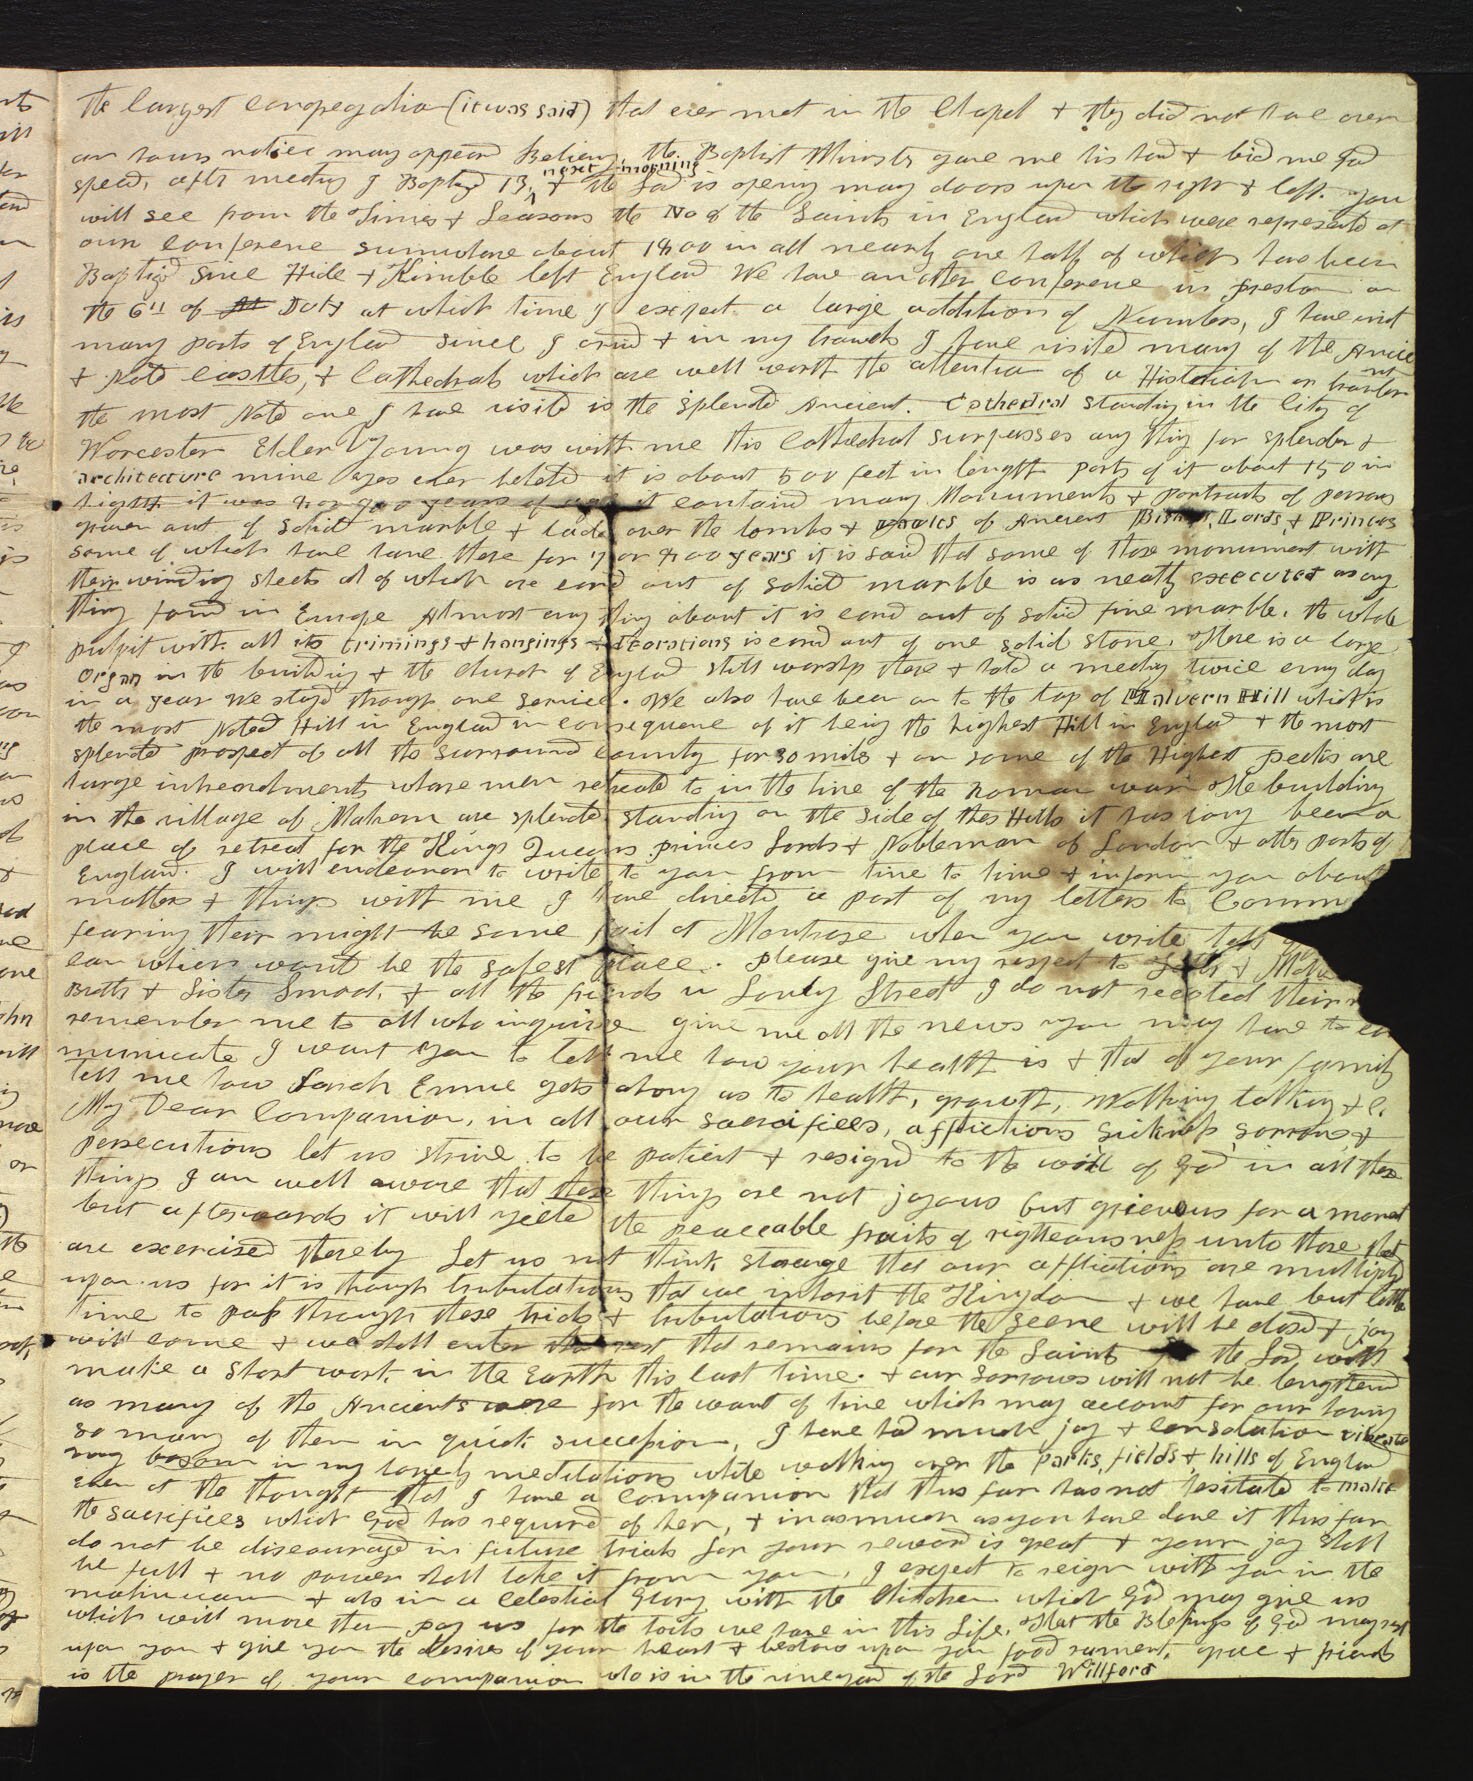 the largest congregation (it was said) that ever met in the Chapel & they did not have over
an hours notice many appeared Believing, the Baptist Minister gave me his hand & bid me God
speed, after meeting I Baptized 13, next morning & the Lord is opening many doors upon the right & left. you
will see from the Times & Seasons the No of the Saints in England which were represented at
our conference sumwhare about 1800 in all nearly one half of which have been
Baptized since Hide & Kimble left England We have another Conference in Preston on
the 6th of July at which time I expect a large addition of Numbers, I have visit
many parts of England since I arived & in my travels I have visited many of the Ancient
& Noted castles, & Cathedrals which are well worth the attention of a Historian or traveler
the most Noted one I have visited is the splended Ancient. Cathedral standing in the City of
Worcester Elder Young was with me this Cathedral surpasses any thing for splendor &
architecture mine eyes ever beheld it is about 500 feet in length parts of it about 150 in
hight it was 7 or 900 years of age it containd many Monuments & portraits of persons
graven out of solid marble & laid over the tombs & of Ancient Bishops, Lords, & Princes
some of which have lane there for 7 or 800 years it is said that some of those monument with
their winding sheets all of which are carvd out of solid marble is as neatly executed as any
thing found in Europe Almost evry thing about it is carvd out of solid fine marble. the whole
pulpit with all its trimings & hangings & decorations is carvd out of one solid stone. there is a large
organ in the building & the church of England still worship there & hold a meeting twice evry day
in a year we stayd through one service. We also have been on to the top of Malvern Hill which is
the most Noted Hill in England in consequence of it being the highest Hill in England & the most
splended prospect of all the surround county for 30 miles & on some of the Highest peeks are
large intrenchments whare men retreated to in the time of the Roman wars The building
in the village of Malvern are splended standing on the side of thes Hills it has long been a
place of retreat for the Kings Queens princes Lords & Nobleman of London & other parts of
England. I will endeavor to write to you from time to time & inform you about
matters & things with me I have directed a part of my letters to Comm
fearing their might be some fail at Montrose when you write tell
can whien want be the safest place. please give my respect to &
Broth & Sister Smoot, & all the friends in Street I do not recollect their
remember me to all who inquire give me all the news you may have to com
municate I want you to tell me how your health is & that of your family
tell me how Sarah Emma gets along as to health, growth, walking talking &c.
My Dear Companion, in all our sacrifices, afflictions sickness sorrows &
persecutions let us strive to be patient & resignd to the will of God, in all these
things I am well aware that these things are not joyous but grievous for a moment
but afterwards it will yield the peaceable fruits of righteousness unto those that
are exercised thereby Let us not think strange that our afflictions are multiplyed
upon us for it is through tribulations that we inherit the Kingdom & we have but little
time to pass through these trials & tribulations before the scene will be closed & joy
will come & we shall enter that rest that remains for the Saints the Lord will
make a short work in the Earth this last time. & our sorrows will not be lengthend
as many of the Ancients were for the want of time which may account for our having
so many of them in quick succession, I have had much joy & consolation
my bosom in my lonely meditations while walking over the parks, fields & hills of England
even at the thought that I have a Companion that thus far has not hesitated to make
the sacrifices which God has required of her, & inasmuch as you have done it thus far
do not be discouraged in future trials for your reward is great & your joy shall
be full & no power shall take it from you, I expect to reign with you in the
& also in a celestial Glory with the children which God may give us
which will more then pay us for the toils we have in this Life, that the Blessings of God may rest
upon you & give you the desires of your heart & bestow upon you food rament, grace & friends
is the prayer of your companion who is in the vineyard of the Lord Willford